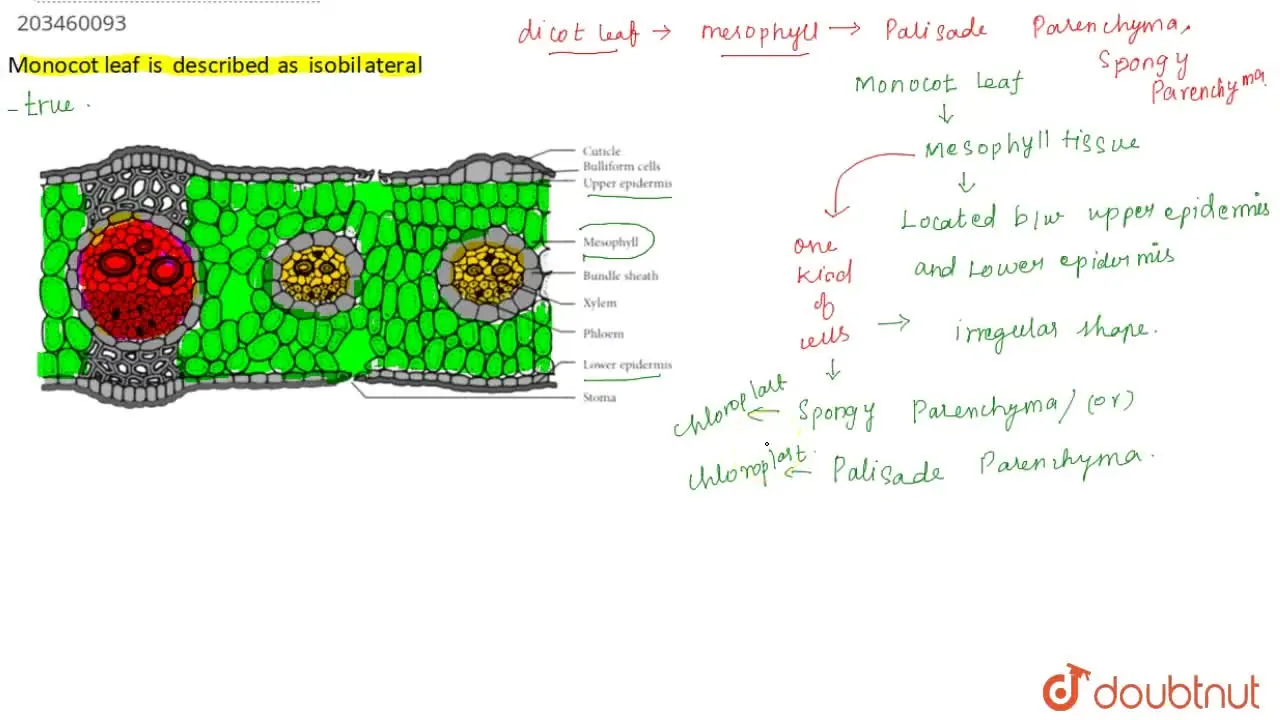 203460093
Monocot leaf is described as isobilateral
- true.
Cuticle
Bulliform cells
Upper epidermis
Mesophyll
Bundle sheath
Xylem
Phloem
Lower epidermis
Stoma
dicot leaf → mesophyll → Palisade Parenchyma,
Spongy
Parenchyma.
Monocot leaf
↓
Mesophyll tissue
↓
Located b/w upper epidermis
and Lower epidermis
one
Kind
of
cells → irregular shape.
↓
chloroplast ← Spongy Parenchyma/(or)
chloroplast. ← Palisade Parenchyma.
doubtnut